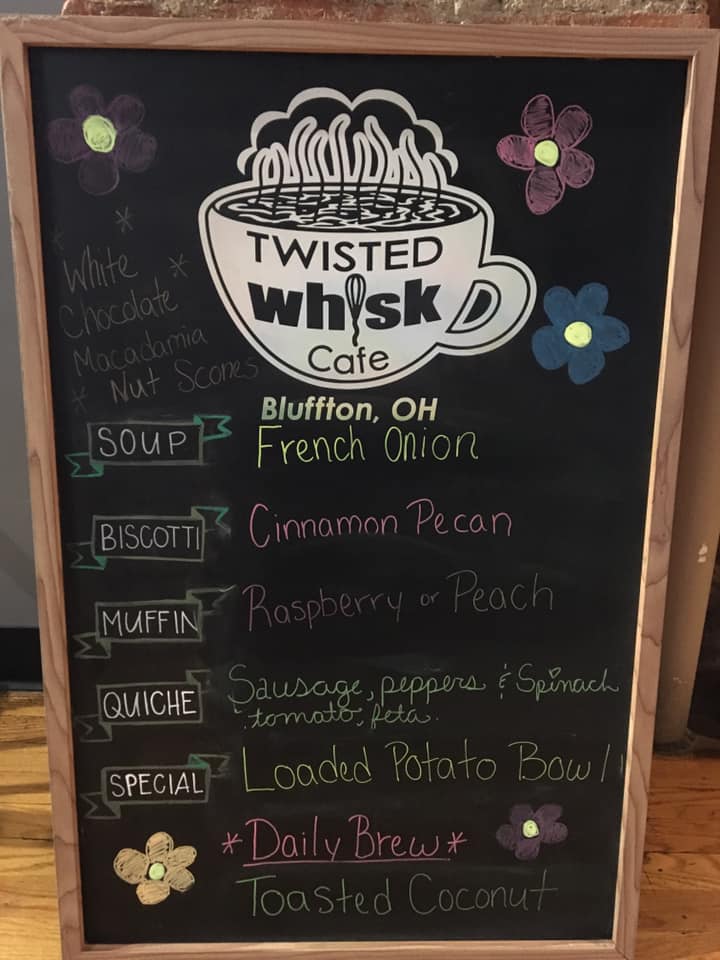 TWISTED
whisk
Cafe
Bluffton, OH
* White
Chocolate *
Macadamia
* Nut Scones
SOUP French Onion
BISCOTTI Cinnamon Pecan
MUFFIN Raspberry or Peach
QUICHE Sausage, peppers & Spinach
& tomato, feta.
SPECIAL Loaded Potato Bowl
*Daily Brew*
Toasted Coconut